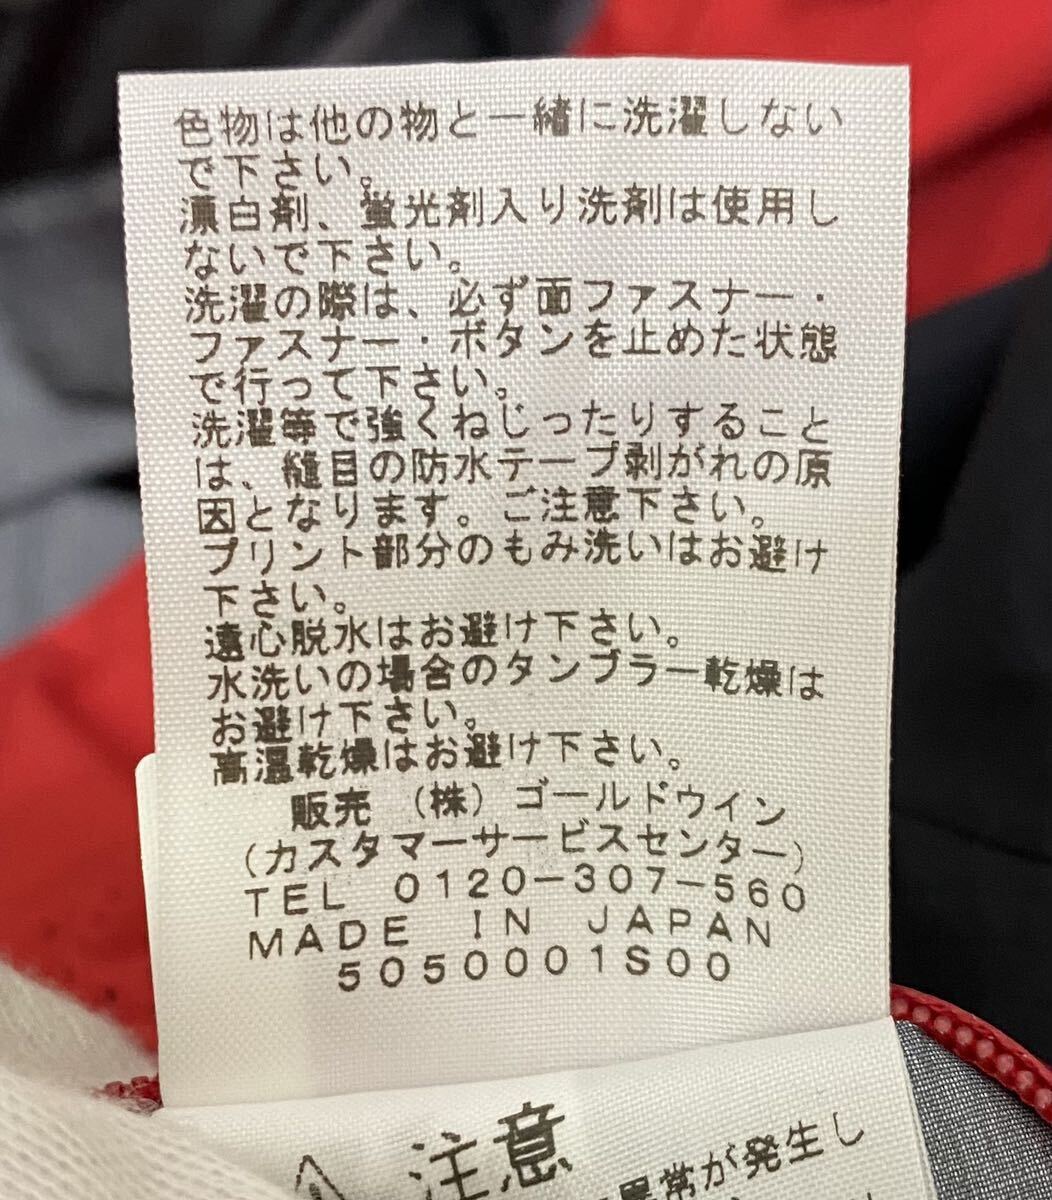 色物は他の物と一緒に洗濯しない
で下さい。
漂白剤、蛍光剤入り洗剤は使用し
ないで下さい。
洗濯の際は、必ず面ファスナー・
ファスナー・ボタンを止めた状態
で行って下さい。
洗濯等で強くねじったりすること
は、縫目の防水テープ剥がれの原
因となります。ご注意下さい。
プリント部分のもみ洗いはお避け
下さい。
遠心脱水はお避け下さい。
水洗いの場合のタンブラー乾燥は
お避け下さい。
高温乾燥はお避け下さい。
販売 (株) ゴールドウイン
(カスタマーサービスセンター)
TEL 0120-307-560
MADE IN JAPAN
5050001S00
注意
異常が発生し